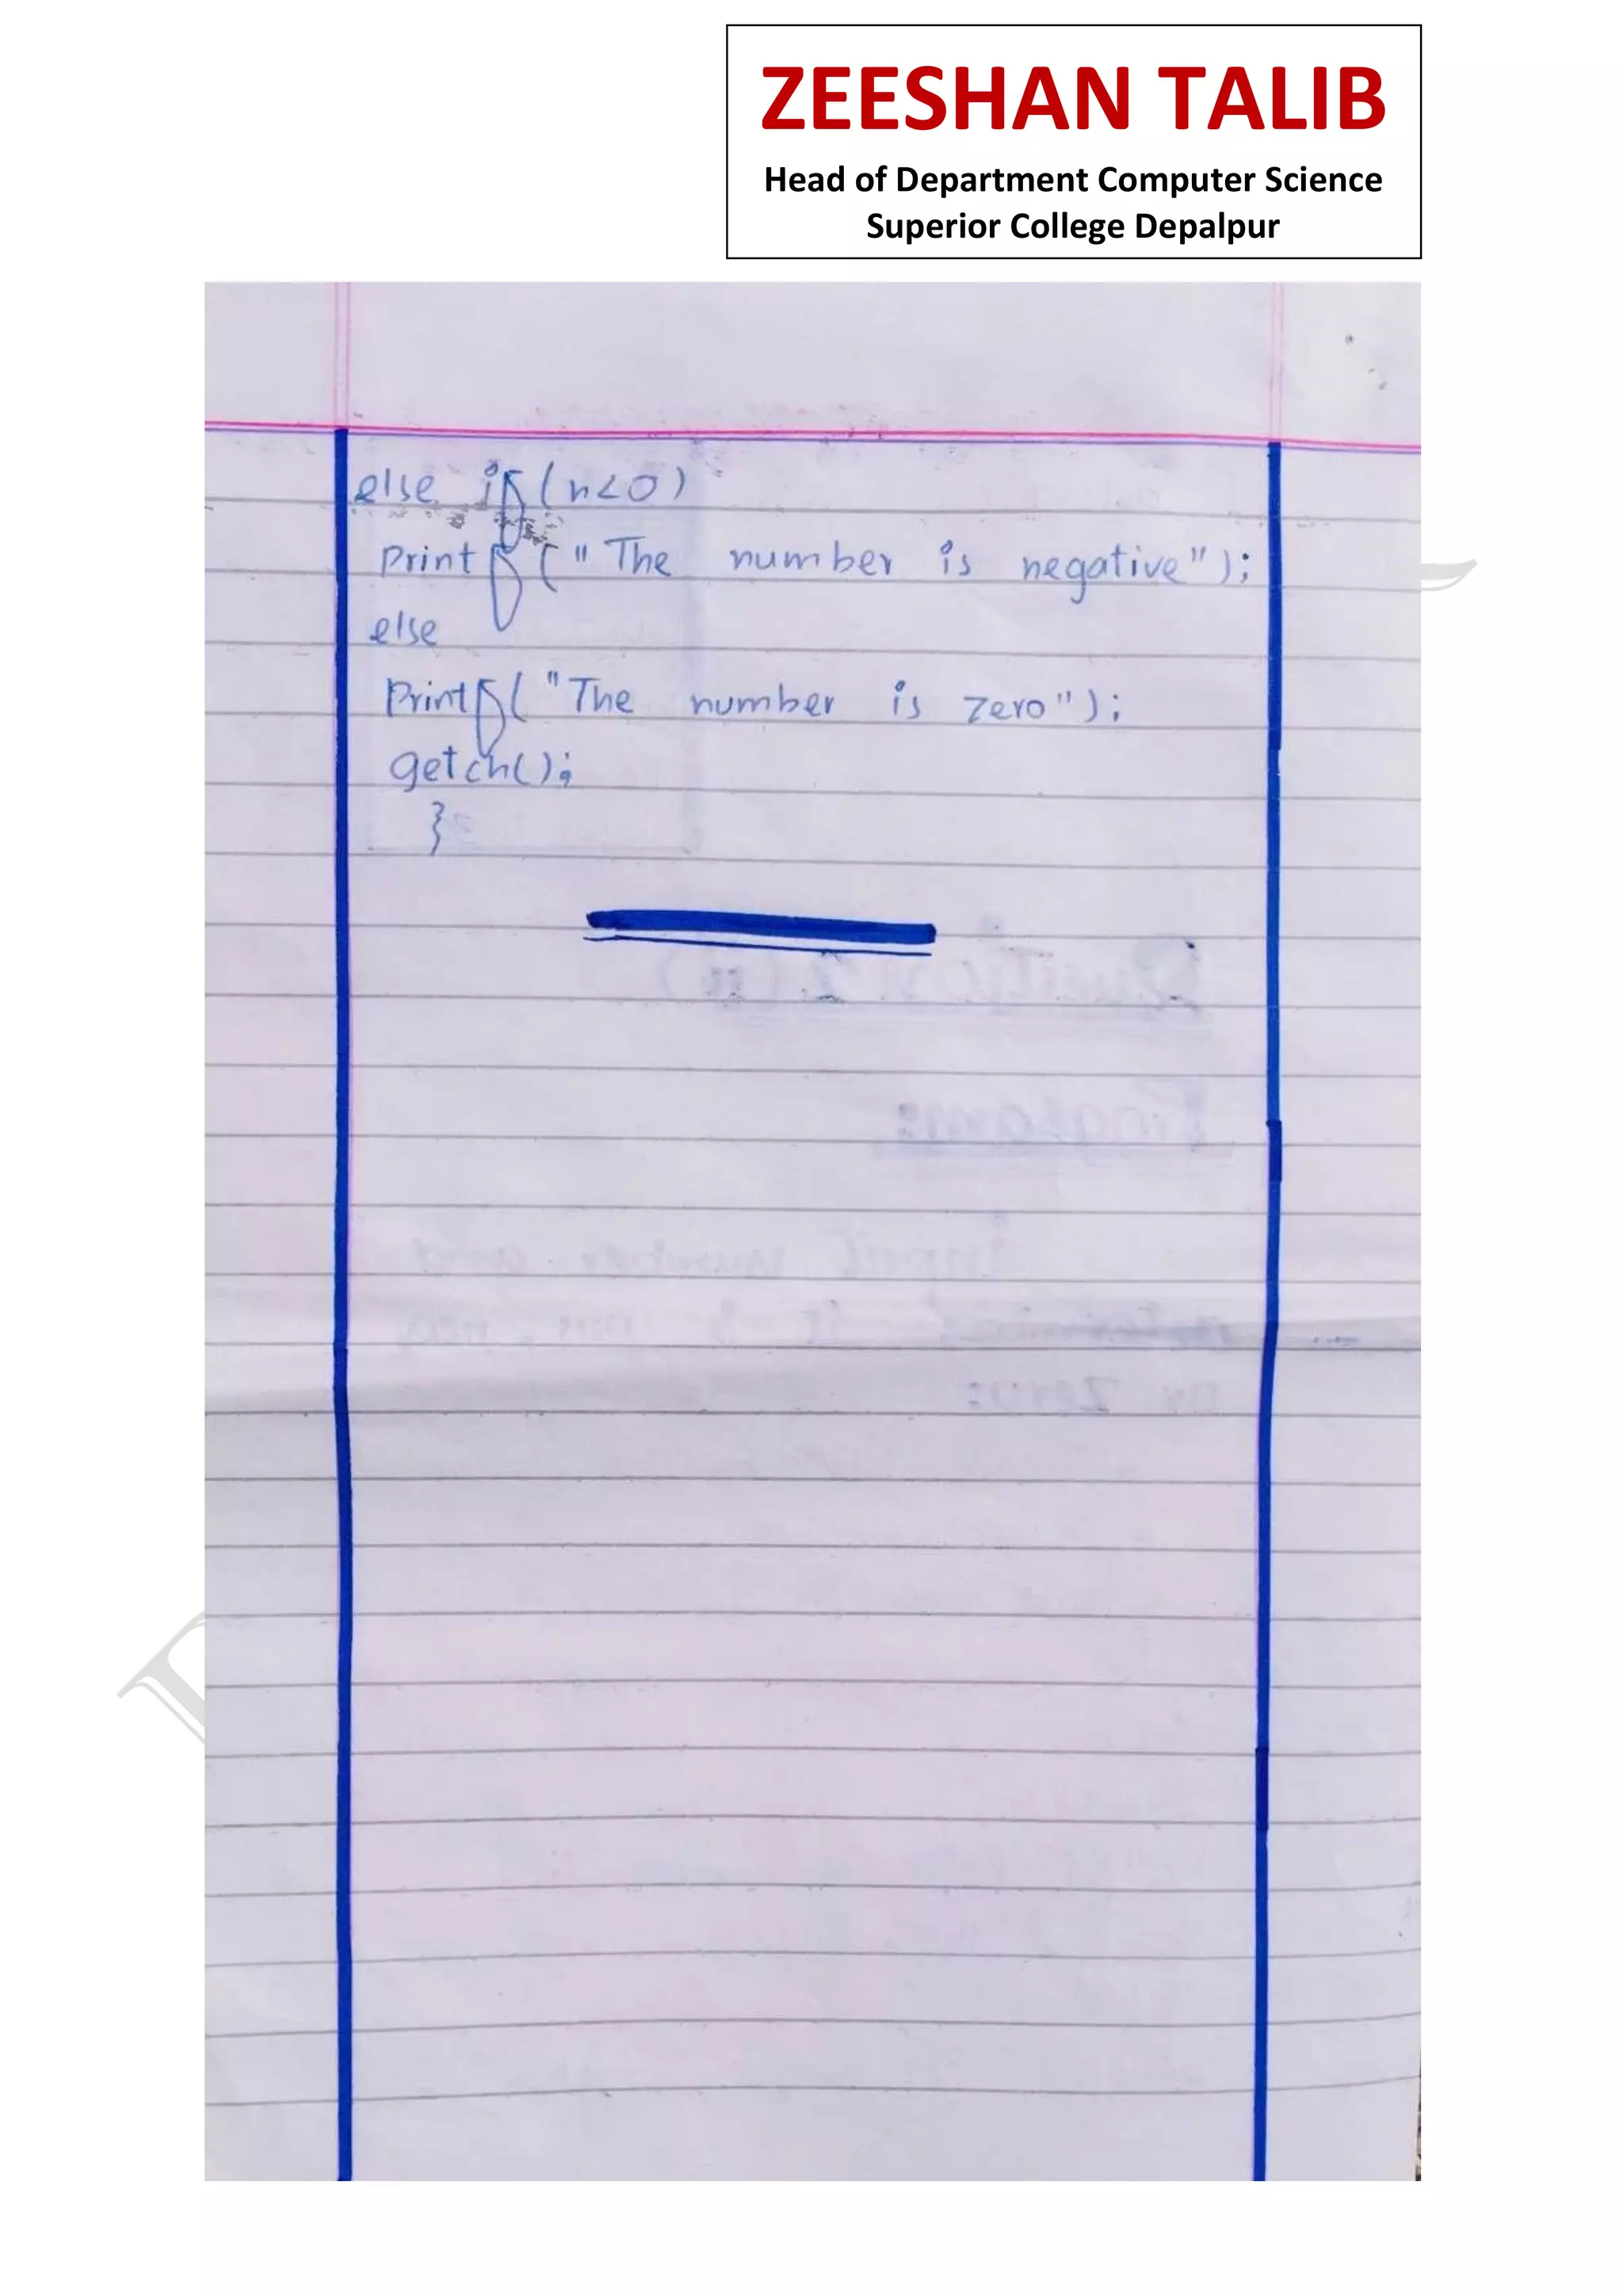 ZEESHAN TALIB
Head of Department Computer Science
Superior College Depalpur
else if (n<0)
printf ("The number is negative");
else
Printf("The number is zero");
getch();
}